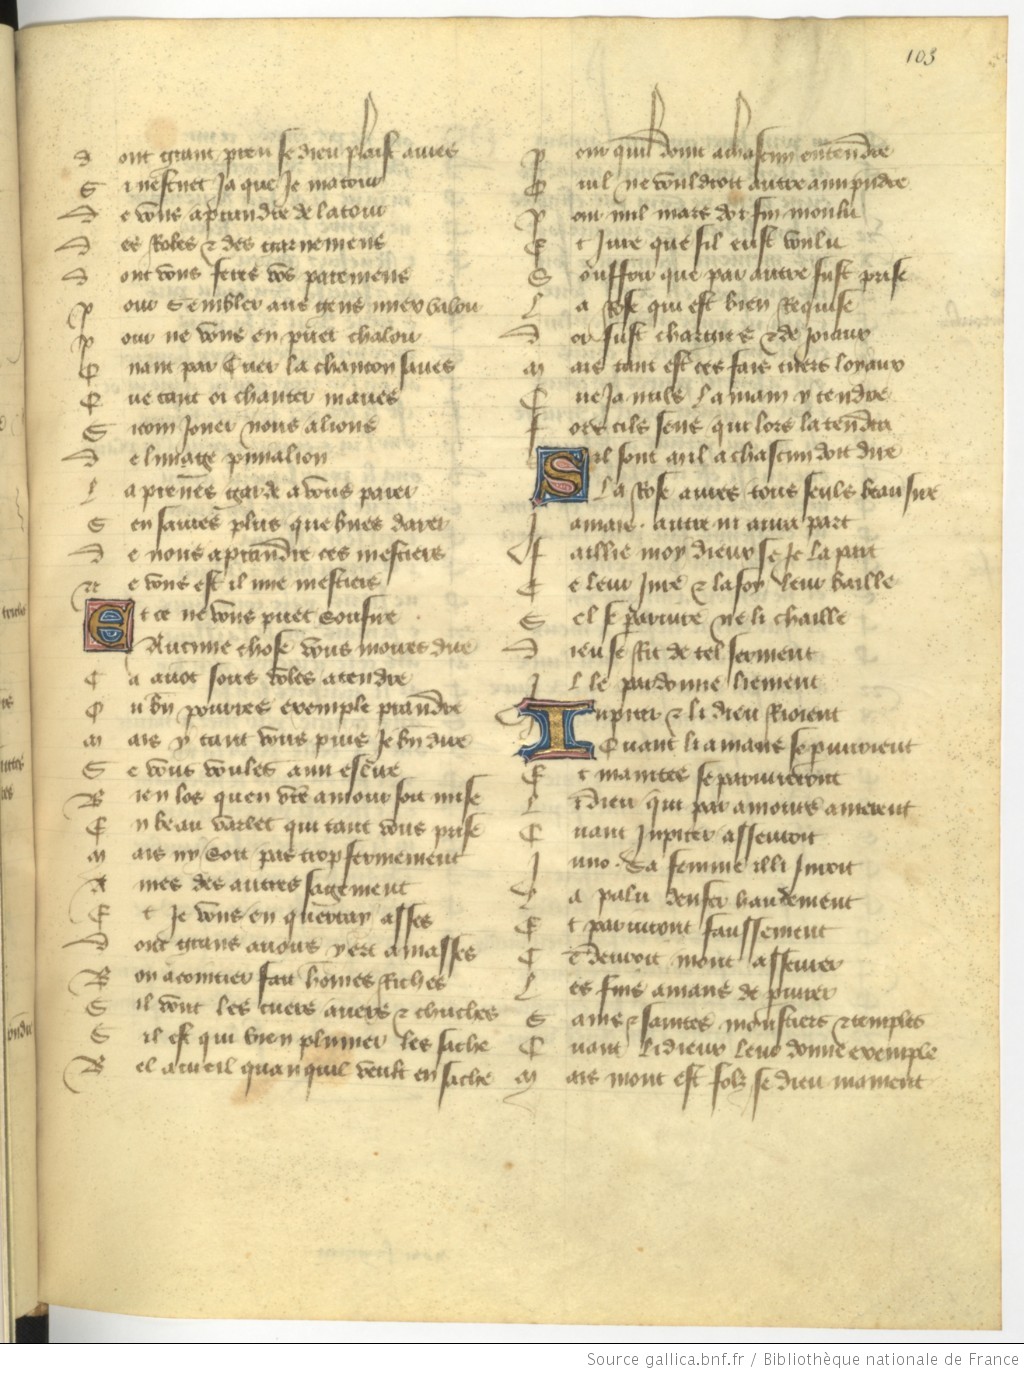 103
D ont grant preu se dieu plaist aures
S i nescuet ja que je matour
D e vous aprandre de latour
D es Robes & des garnemens
D ont vous feres vos paremens
P our Sembler aus gens miex valoir
P our ne vous en puet chaloir
Q uant par cuer la chancon saues
Q ue tant oi chanter maues
S icom joer nous alions
D e limage pimalion
L a prenes garde a vous parer
S en saures plus que bues darer
D e nous aprandre ces mestiers
N e vous est il mie mestiers
E t ce ne vous puet soufire
Aucune chose vous moures dire
C a auot sous voles atendre
O u bn pourres exemple prandre
M ais y tant vous puis je bn dire
S e vous voules ami eslire
B ien los quen vre amour soit mise
E n beau varlet qui tant vous prise
M ais ny soit pas trop fermement
A mes des autres sagement
E t je vous en querray asses
D ont grans auoirs yert amasses
B on acointier fait homes Riches
S il vont les cuers auers & chiches
S il est qui bien plumer les sache
B el acueil quanquil veult en sache
P our quil doint a chascun entendre
Q uil ne vouldroit autre ami prdre
P our mil mars dor fin moulu
E t jure que sil eust voulu
S ouffrir que par autre fust prise
L a Rose qui est bien Requise
D or fust chargies & de joiaux
M ais tant est ces fais cuers loyaux
Q ue ja nuls la main y tendre
F ors cils seus qui lors la tendra
S il sont mil a chascun doit dire
La Rose aures tous seuls beau sire
J amais autre ni aura part
F aillie moy dieux se je la part
C e leur jure & la foy leur baille
S el se pariure ne li chaille
D ieu se Rit de tel serment
J l le pardonne liement
Jupiter & li dieu Rioient
Quant li amans se pariuroient
E t maintes se pariurerent
L i dieu qui par amours amerent
Q uant Jupiter asseuroit
J uno Sa femme illi juroit
L a palu denfer haudement
E t pariuroit faussement
C e deuroit mont asseurer
L es fins amans de piurer
S ains & saintes moustiers & temples
Q uant li dieux leur donne exemple
M ais mont est folz se dieu mament
Source gallica.bnf.fr / Bibliothèque nationale de France